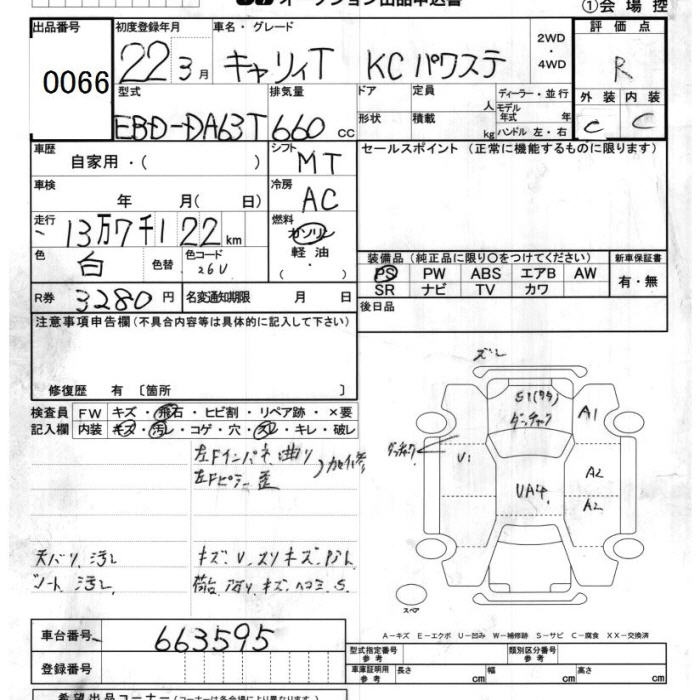 ①会 場 控
出品番号
0066
初度登録年月
22 3 月
車名・グレード
キャリイT KC パワステ
2WD
・
4WD
評 価 点
R
外 装 内 装
C C
型式
EBD-DA63T
排気量
660 cc
ドア
形状
定員
人
積載
kg
ディーラー・並 行
モデル
年式 年
ハンドル 左・右
車歴
自家用・( )
シフト
MT
セールスポイント (正常に機能するものに限ります)
車検
年 月( 日)
冷房
AC
走行
13万7千122 km
燃料
ガソリン
軽 油
・( )
色
白
色替
色コード
26U
装備品 (純正品に限り○をつけてください)
新車保証書
PS PW ABS エアB AW
有・無
SR ナビ TV カワ
R券 3280 円
名変通知期限 月 日
後日品
注意事項申告欄 (不具合内容等は具体的に記入して下さい)
修復歴 有 〔箇所 〕
検査員
記入欄
FW キズ・飛石・ヒビ割・リペア跡・×要
内装 キズ・汚レ・コゲ・穴・スレ・キレ・破レ
左Fインパネ曲り
左Fピラー歪
天バリ 汚レ
シート 汚レ
ズレ
S1
A1
V1
A2
UA4
A2
スペア
A－キズ E－エクボ U－凹み W－補修跡 S－サビ C－腐食 XX－交換済
車台番号 663595
登録番号
型式指定番号
参 考
類別区分番号
参 考
車庫証明用
参 考
長さ cm 幅 cm 高さ cm
希望出品コーナー (コーナーは各会場により異なります)